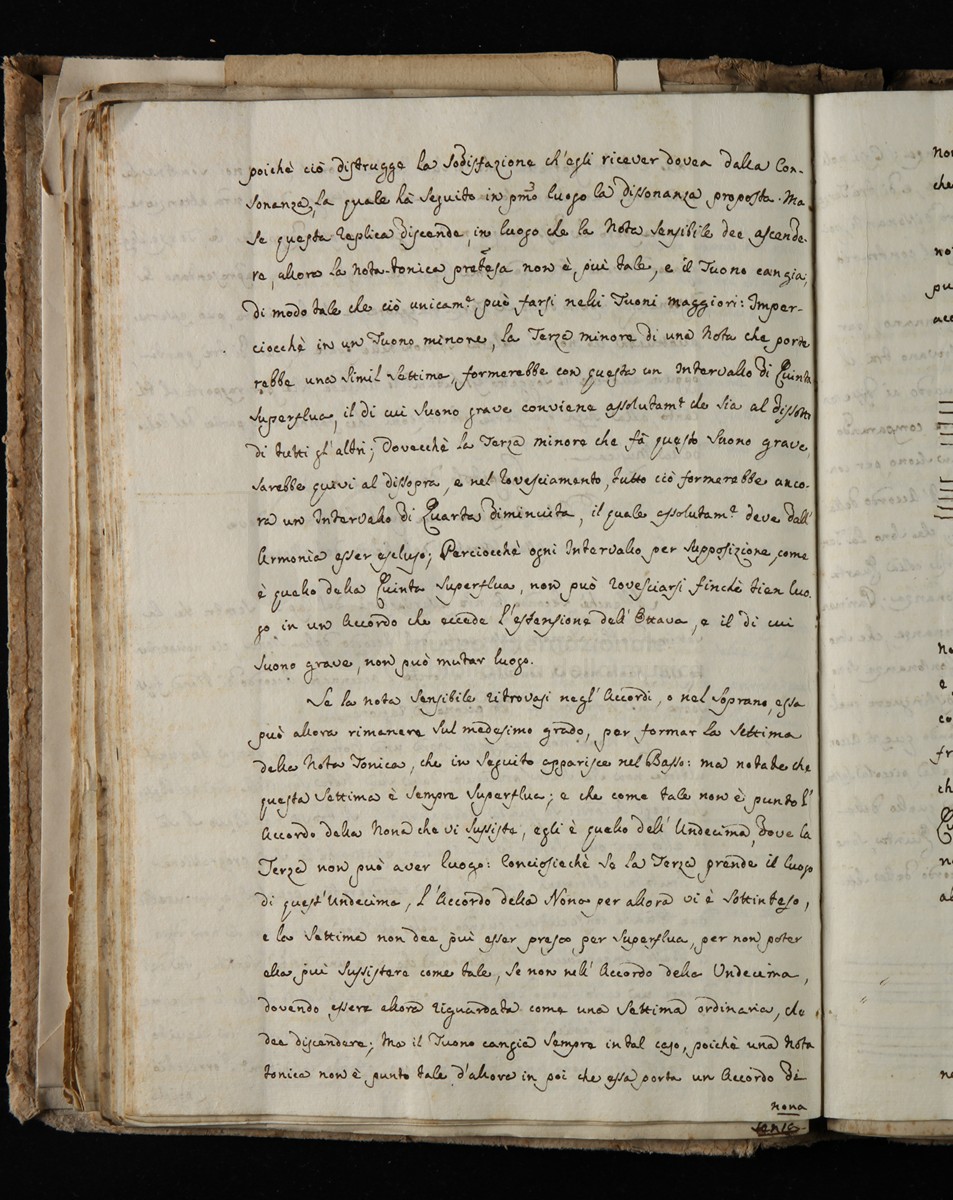 poichè ciò distrugge la Sodisfazione ch'egli ricever dovea dalla Con-
sonanza, la quale hà Seguito in pmo luogo la dissonanza proposta. Ma
se questa replica discende, in luogo che la Nota sensibile dee ascende-
re, allora la Nota-tonica pretesa non è più tale, e il Tuono cangia;
di modo tale che ciò unicam.e può farsi nelli Tuoni maggiori: Imper-
ciocchè in un Tuono minore, la Terza minore di una Nota che porte
rebbe una simil Settima, formerebbe con questa un Intervallo di Quinta
Superflua, il di cui Suono grave conviene assolutam.e che sia al dissotto
di tutti gl'altri; Dovecchè la Terza minore che fà questo Suono grave,
sarebbe quivi al dissopra, e nel rovesciamento, tutto ciò formerebbe anco-
ra un Intervallo di Quarta diminuita, il quale assolutam.e deve dall'
Armonia esser escluso; Perciocchè ogni Intervallo per supposizione, come
è quello della Quinta Superflua, non può rovesciarsi finchè tien luo-
go in un Accordo che eccede l'estensione dell'Ottava, e il di cui
Suono grave, non può mutar luogo.
Se la nota Sensibile ritrovasi negl'Accordi, o nel Soprano, essa
può allora rimanere sul medesimo grado, per formar la Settima
della Nota Tonica, che in Seguito apparisce nel Basso: ma notate che
questa Settima è sempre Superflua; e che come tale non è punto l'
Accordo della Nona che vi Sussiste, egli è quello dell'Undecima, dove la
Terza non può aver luogo: Conciosiechè se la Terza prende il luogo
di quest'Undecima, l'Accordo della Nona per allora vi è Sottinteso,
e la Settima non dee più esser presa per Superflua, per non poter
ella più Sussistere come tale, se non nell'Accordo della Undecima,
dovendo essere allora riguardata come una Settima ordinaria, che
dee discendere; Ma il Tuono cangia sempre in tal caso, poichè una Nota
tonica non è punto tale d'allora in poi che essa porta un Accordo di
nona